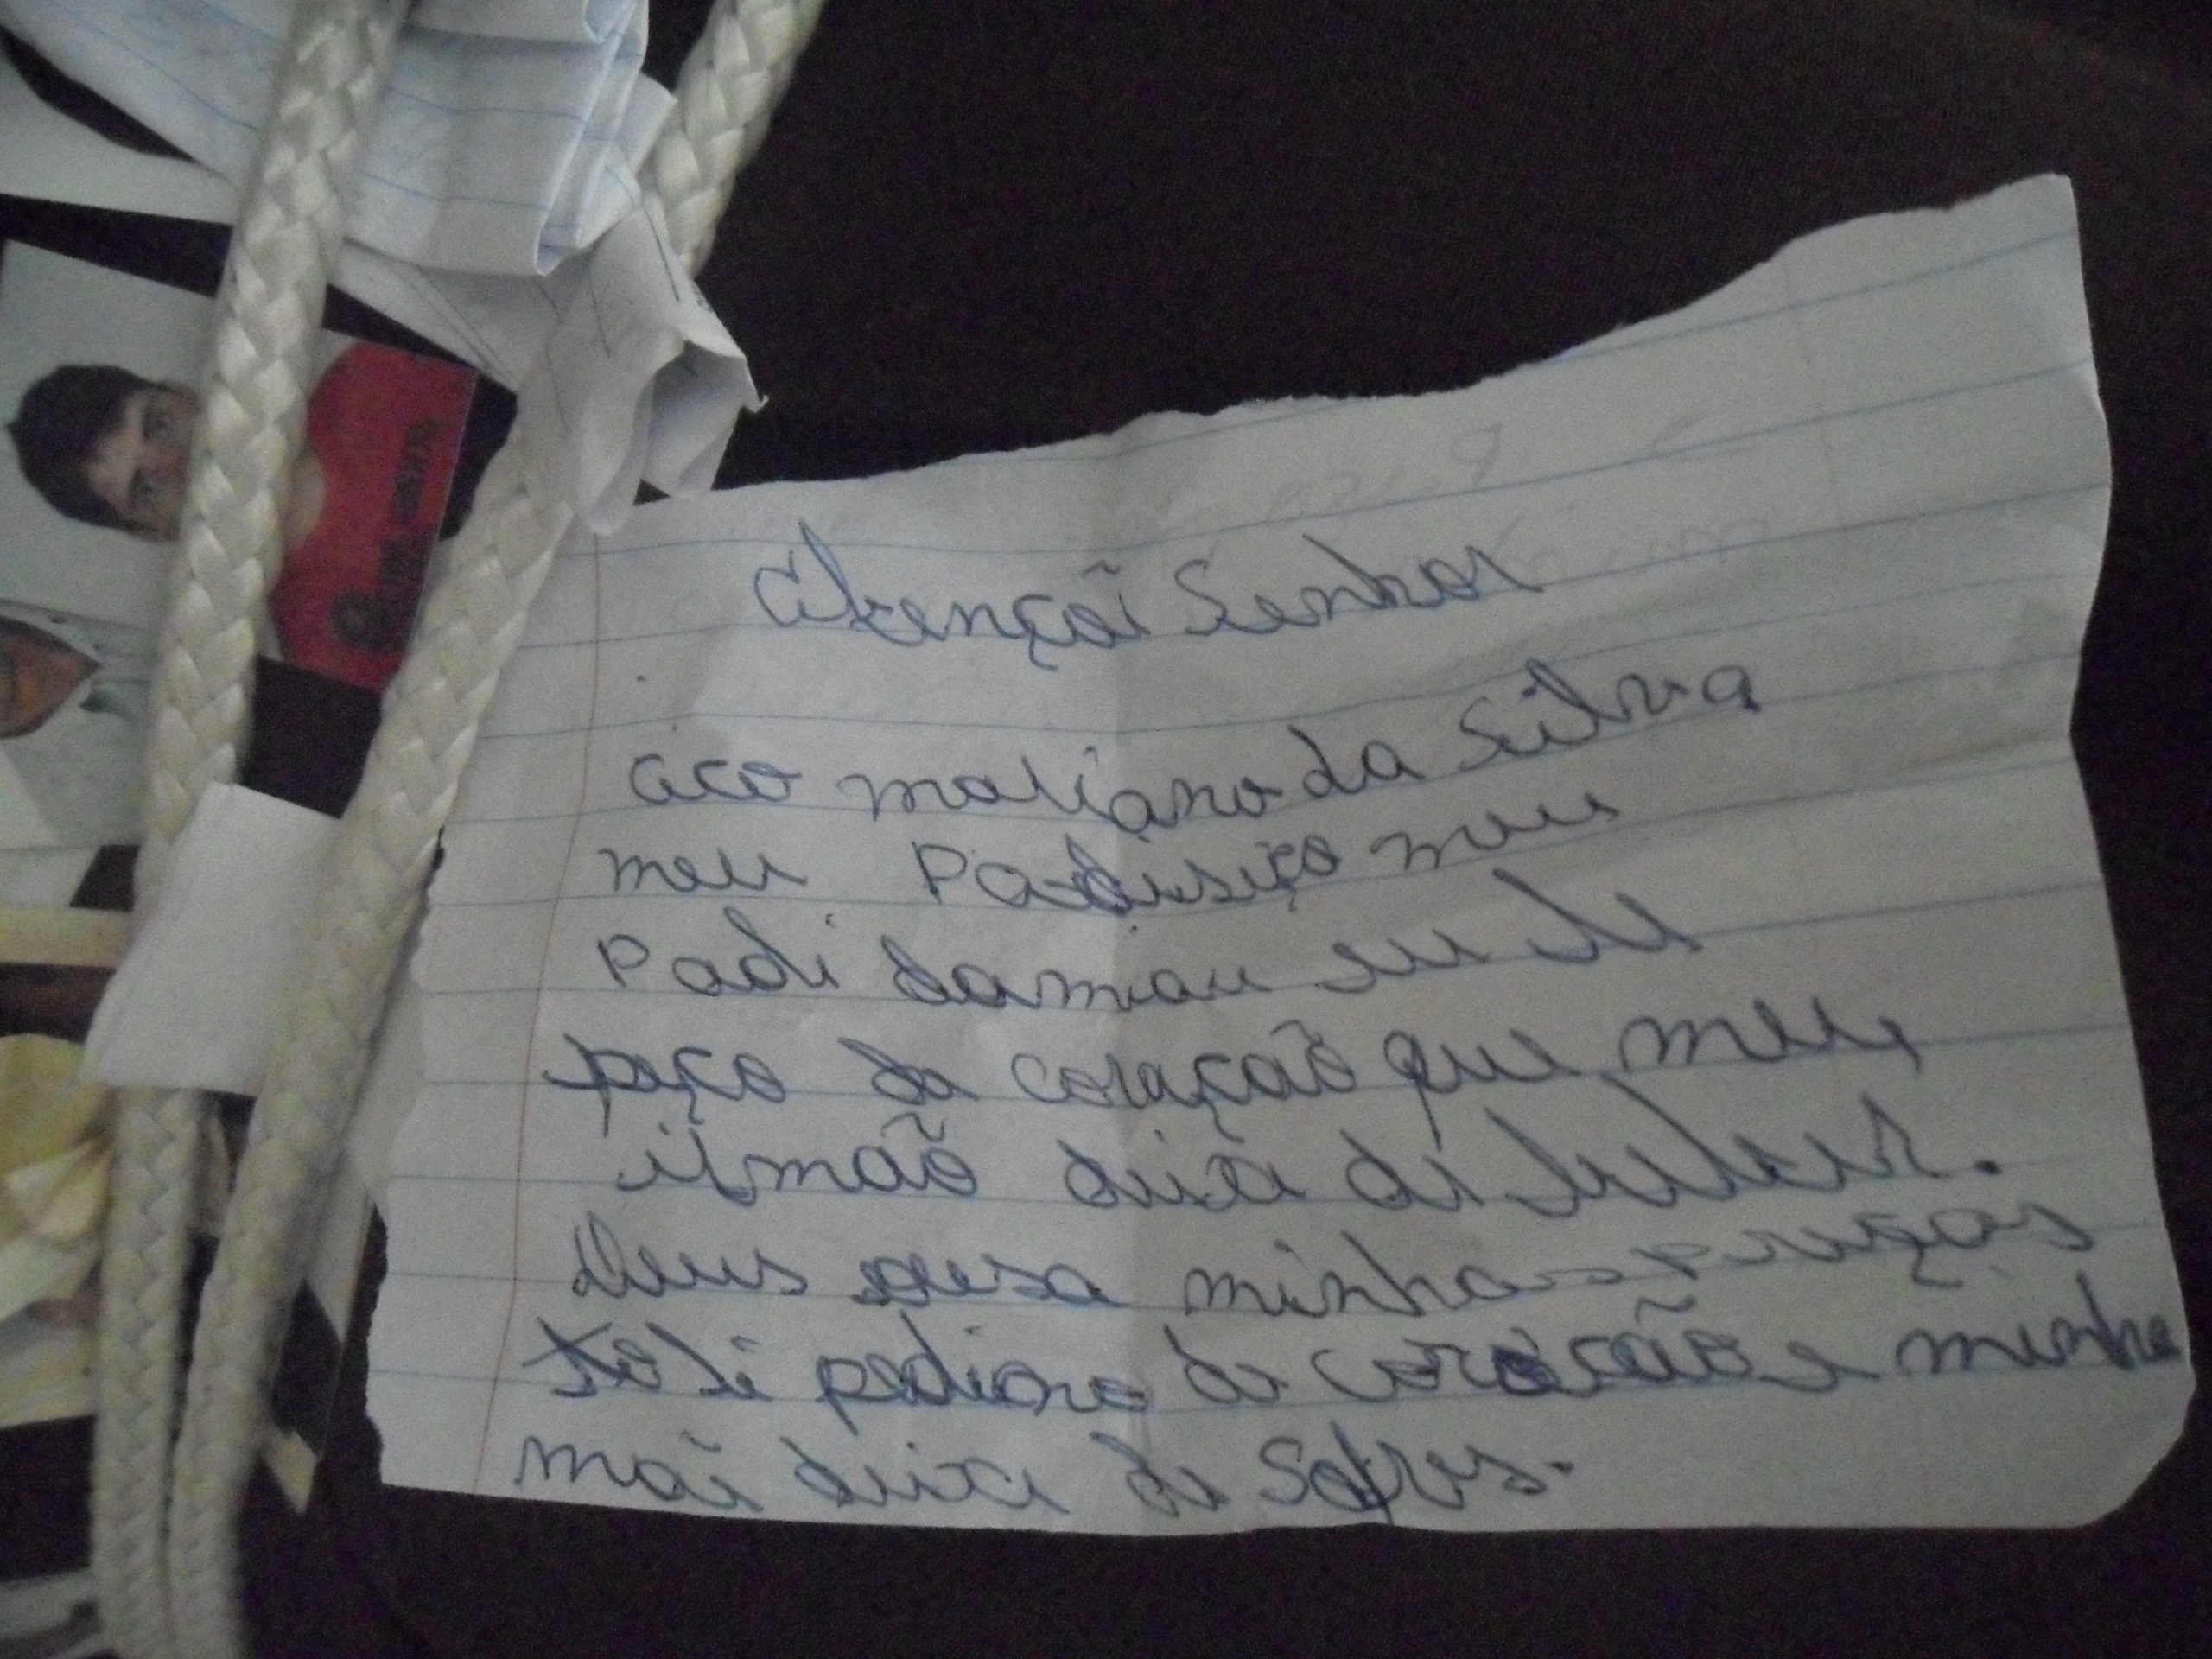 Abençoi Senhor
aco maliano da Silva
meu Padisiço meu
Padi damiau eu le
peço da coração que meu
ilmão deixe di beber.
Deus ousa minhas preças
to li pediono do coração e minha
mãi deixe de Sofres.